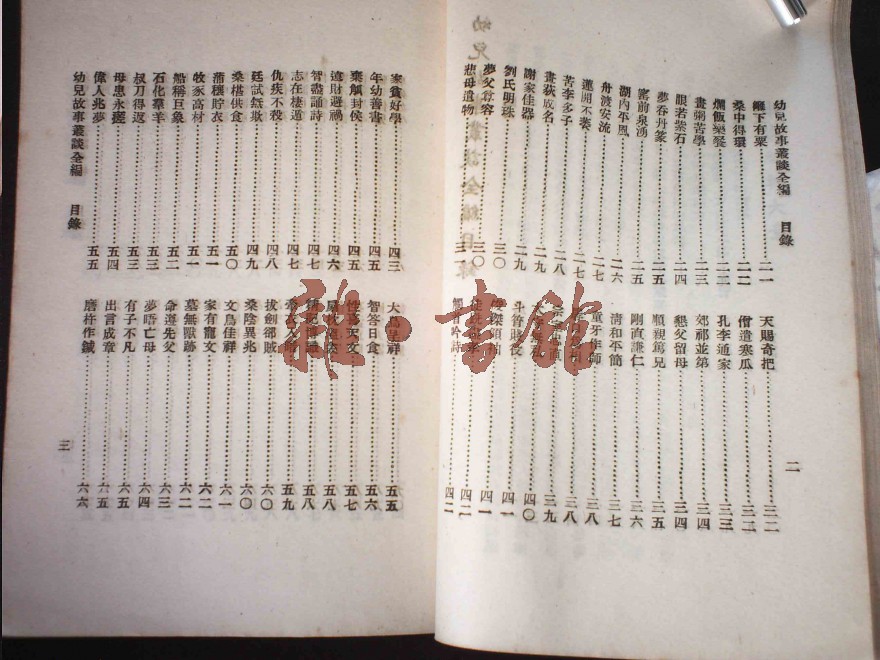 幼兒故事叢談全編 目錄
甑下有粟 二一
桑中得環 二二
爛飯樂餐 二三
畫荊苦學 二三
眼若紫石 二四
夢吞丹篆 二五
奮前泉湧 二五
湖內平風 二六
舟渡安流 二七
蓮開不萎 二七
苦李多子 二八
畫荻成名 二九
謝家佳器 二九
劉氏明珠 三〇
夢父尊容 三〇
悲母遺物 三一
天賜奇把 三二
僧遺寒瓜 三二
孔李通家 三三
郊祁並第 三四
懇父留母 三四
順親篤兄 三五
剛直謙仁 三六
清和平簡 三七
童牙作師 三八
三八
三九
四〇
斗筲賤役 四一
傑領袖 四一
四二
吟詩 四二
二
家貧好學 四三
年幼善書 四五
棄觚封侯 四五
遼財避禍 四六
智盡誦詩 四七
志在棲遁 四七
仇疾不殺 四八
廷試無欺 四九
桑椹供食 五〇
蒲穰貯衣 五一
牧豕高材 五一
船稱巨象 五二
石化羣羊 五三
叔刀得返 五三
母患永瘥 五四
偉人兆夢 五五
幼兒故事叢談全編 目錄
大鳥呈祥 五五
智答日食 五六
性天文 五七
五八
五八
五九
拔劍卻賊 六〇
桑陰異兆 六〇
文鳥佳祥 六一
家有寵文 六二
墓無獸跡 六二
命遵先父 六三
夢唔亡母 六四
有子不凡 六五
出言成章 六五
磨杵作鍼 六六
三
龍·書館